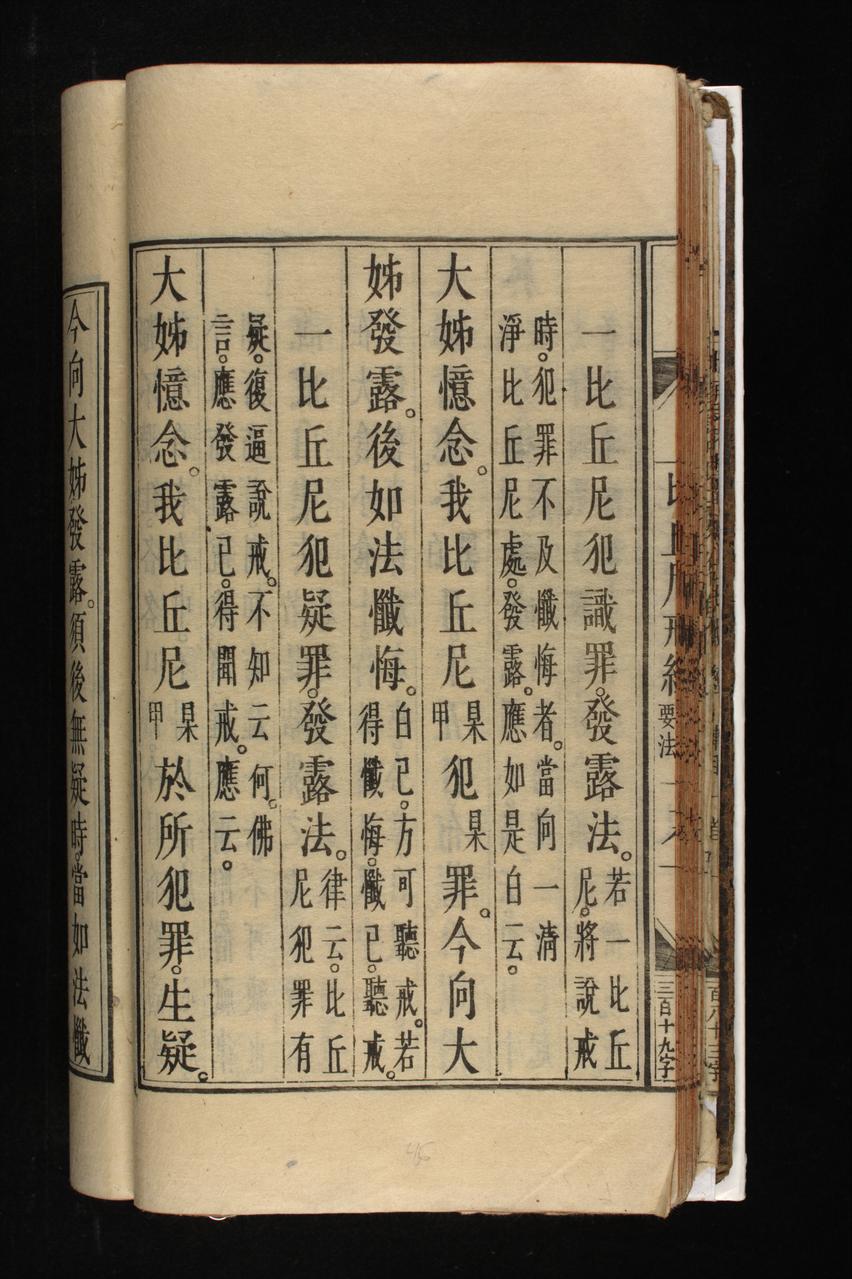 比丘尼
要法
三百十九字
一比丘尼犯識罪。發露法。若一比丘尼。將說戒
時。犯罪不及懺悔者。當向一清
淨比丘尼處。發露。應如是白云。
大姊憶念。我比丘尼某甲犯某罪。今向大
姊發露。後如法懺悔。白已。方可聽戒。若得懺悔。懺已。聽戒。
一比丘尼犯疑罪。發露法。律云。比丘尼犯罪有
疑。復逼說戒。不知云何。佛
言。應發露已。得聞戒。應云。
大姊憶念。我比丘尼某甲於所犯罪。生疑。
今向大姊發露。須後無疑時。當如法懺